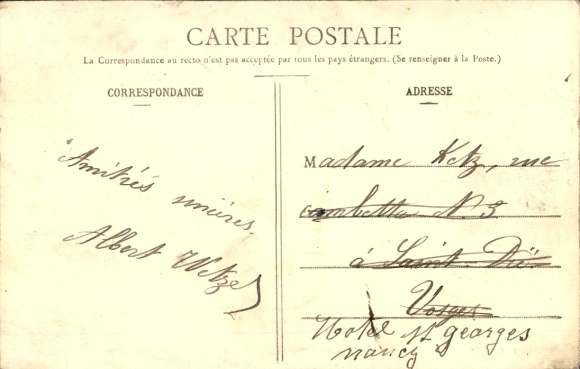 CARTE POSTALE
La Correspondance au recto n'est pas acceptée par tous les pays étrangers. (Se renseigner à la Poste.)
CORRESPONDANCE
Amitiés sincères.
Albert Wetzel
ADRESSE
Madame Ketz, rue
Gambetta N 3
à Saint-Dié
Vosges
Hotel St georges
nancy